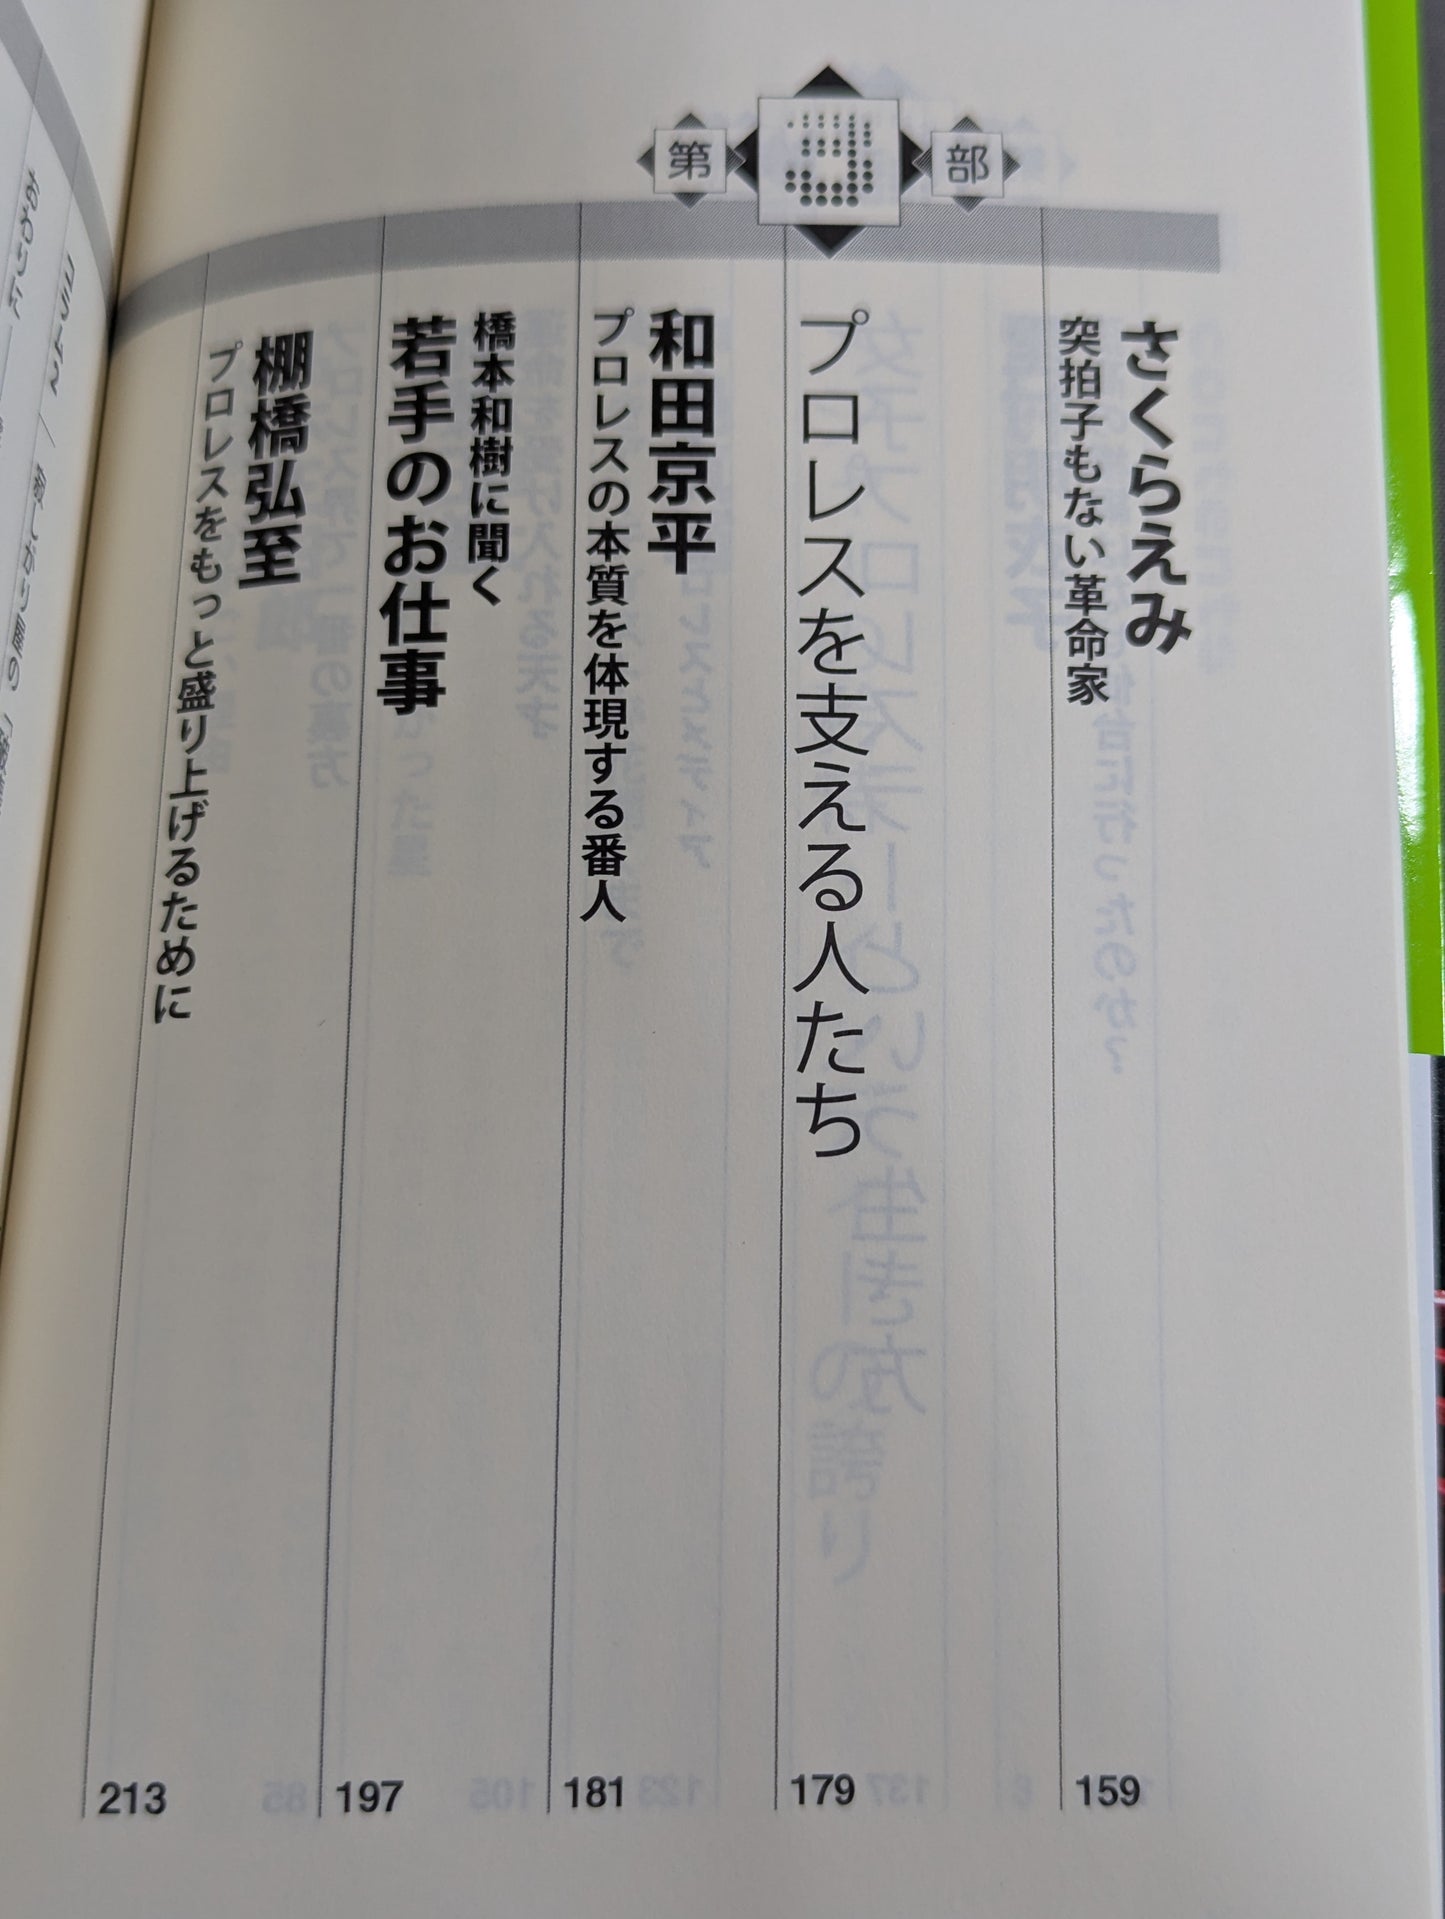 さくらえみ
突拍子もない革命家
159
第3部
プロレスを支える人たち
179
和田京平
プロレスの本質を体現する番人
181
橋本和樹に聞く
若手のお仕事
197
棚橋弘至
プロレスをもっと盛り上げるために
213
おわりに